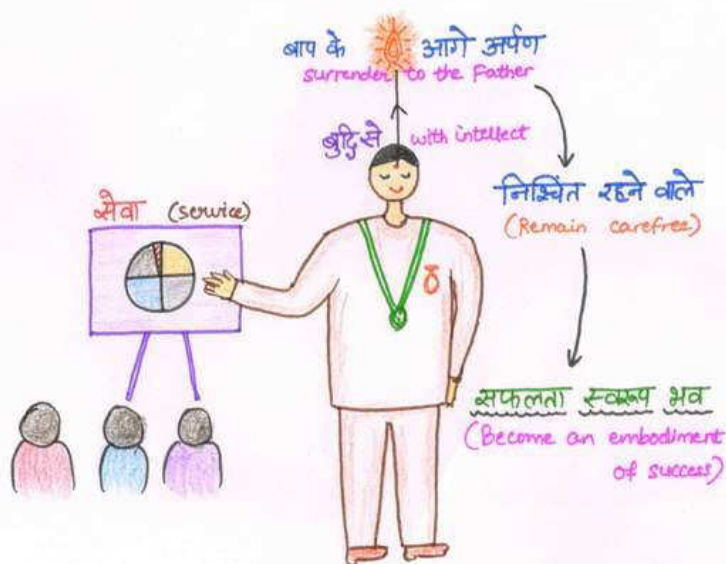 बाप के आगे अर्पण
surrender to the Father
बुद्धि से with intellect
सेवा (service)
निश्चिंत रहने वाले
(Remain carefree)
सफलता स्वरूप भव
(Become an embodiment
of success)